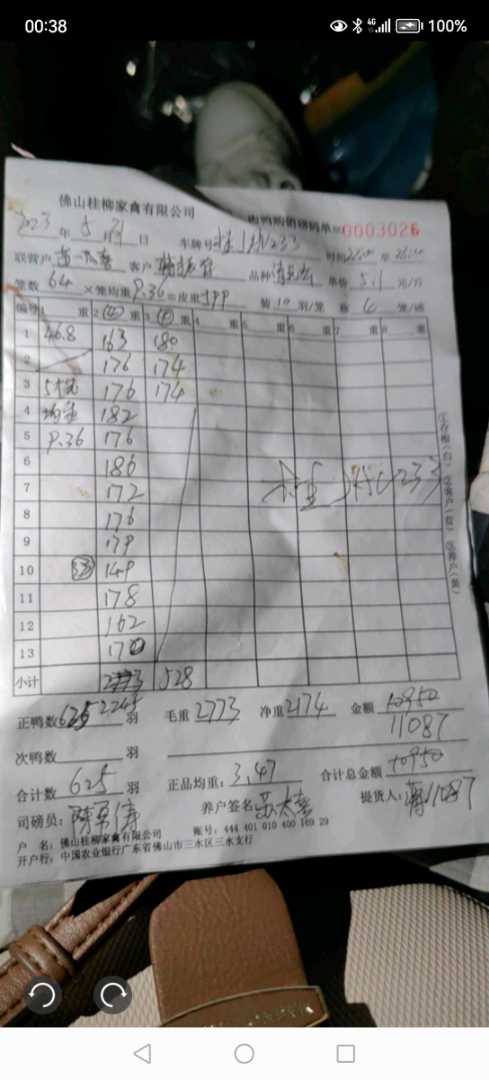 00:38
4G
100%
佛山桂柳家禽有限公司
肉鸭购销磅码单
0003026
2023 年 5 月 日 车牌号 233 时间
联营户 客户 品种 单价 5.1 元/斤
笼数 64 ×笼均重 9.36 =皮重 599 装 10 羽/笼 称 4 笼/磅
编号 1 重 2 (4) 重 3 (4) 重 4 重 5 重 6 重 7 重 8 重
1 46.8 163 180
2 176 174
3 5个笼 176 174
4 均重 182
5 9.36 176
6 186
7 172
8 176
9 179
10 149
11 178
12 162
13 170
小计 2245 528
正鸭数 625 羽 毛重 2773 净重 2174 金额 10950
11087
次鸭数 羽
合计数 625 羽 正品均重: 3.47 合计总金额 10950
司磅员: 养户签名 提货人: 11087
户 名: 佛山桂柳家禽有限公司 账号: 444 401 010 400 169 29
开户行: 中国农业银行广东省佛山市三水区三水支行
①存根(白) ②客户(红) ③养户(黄)
233